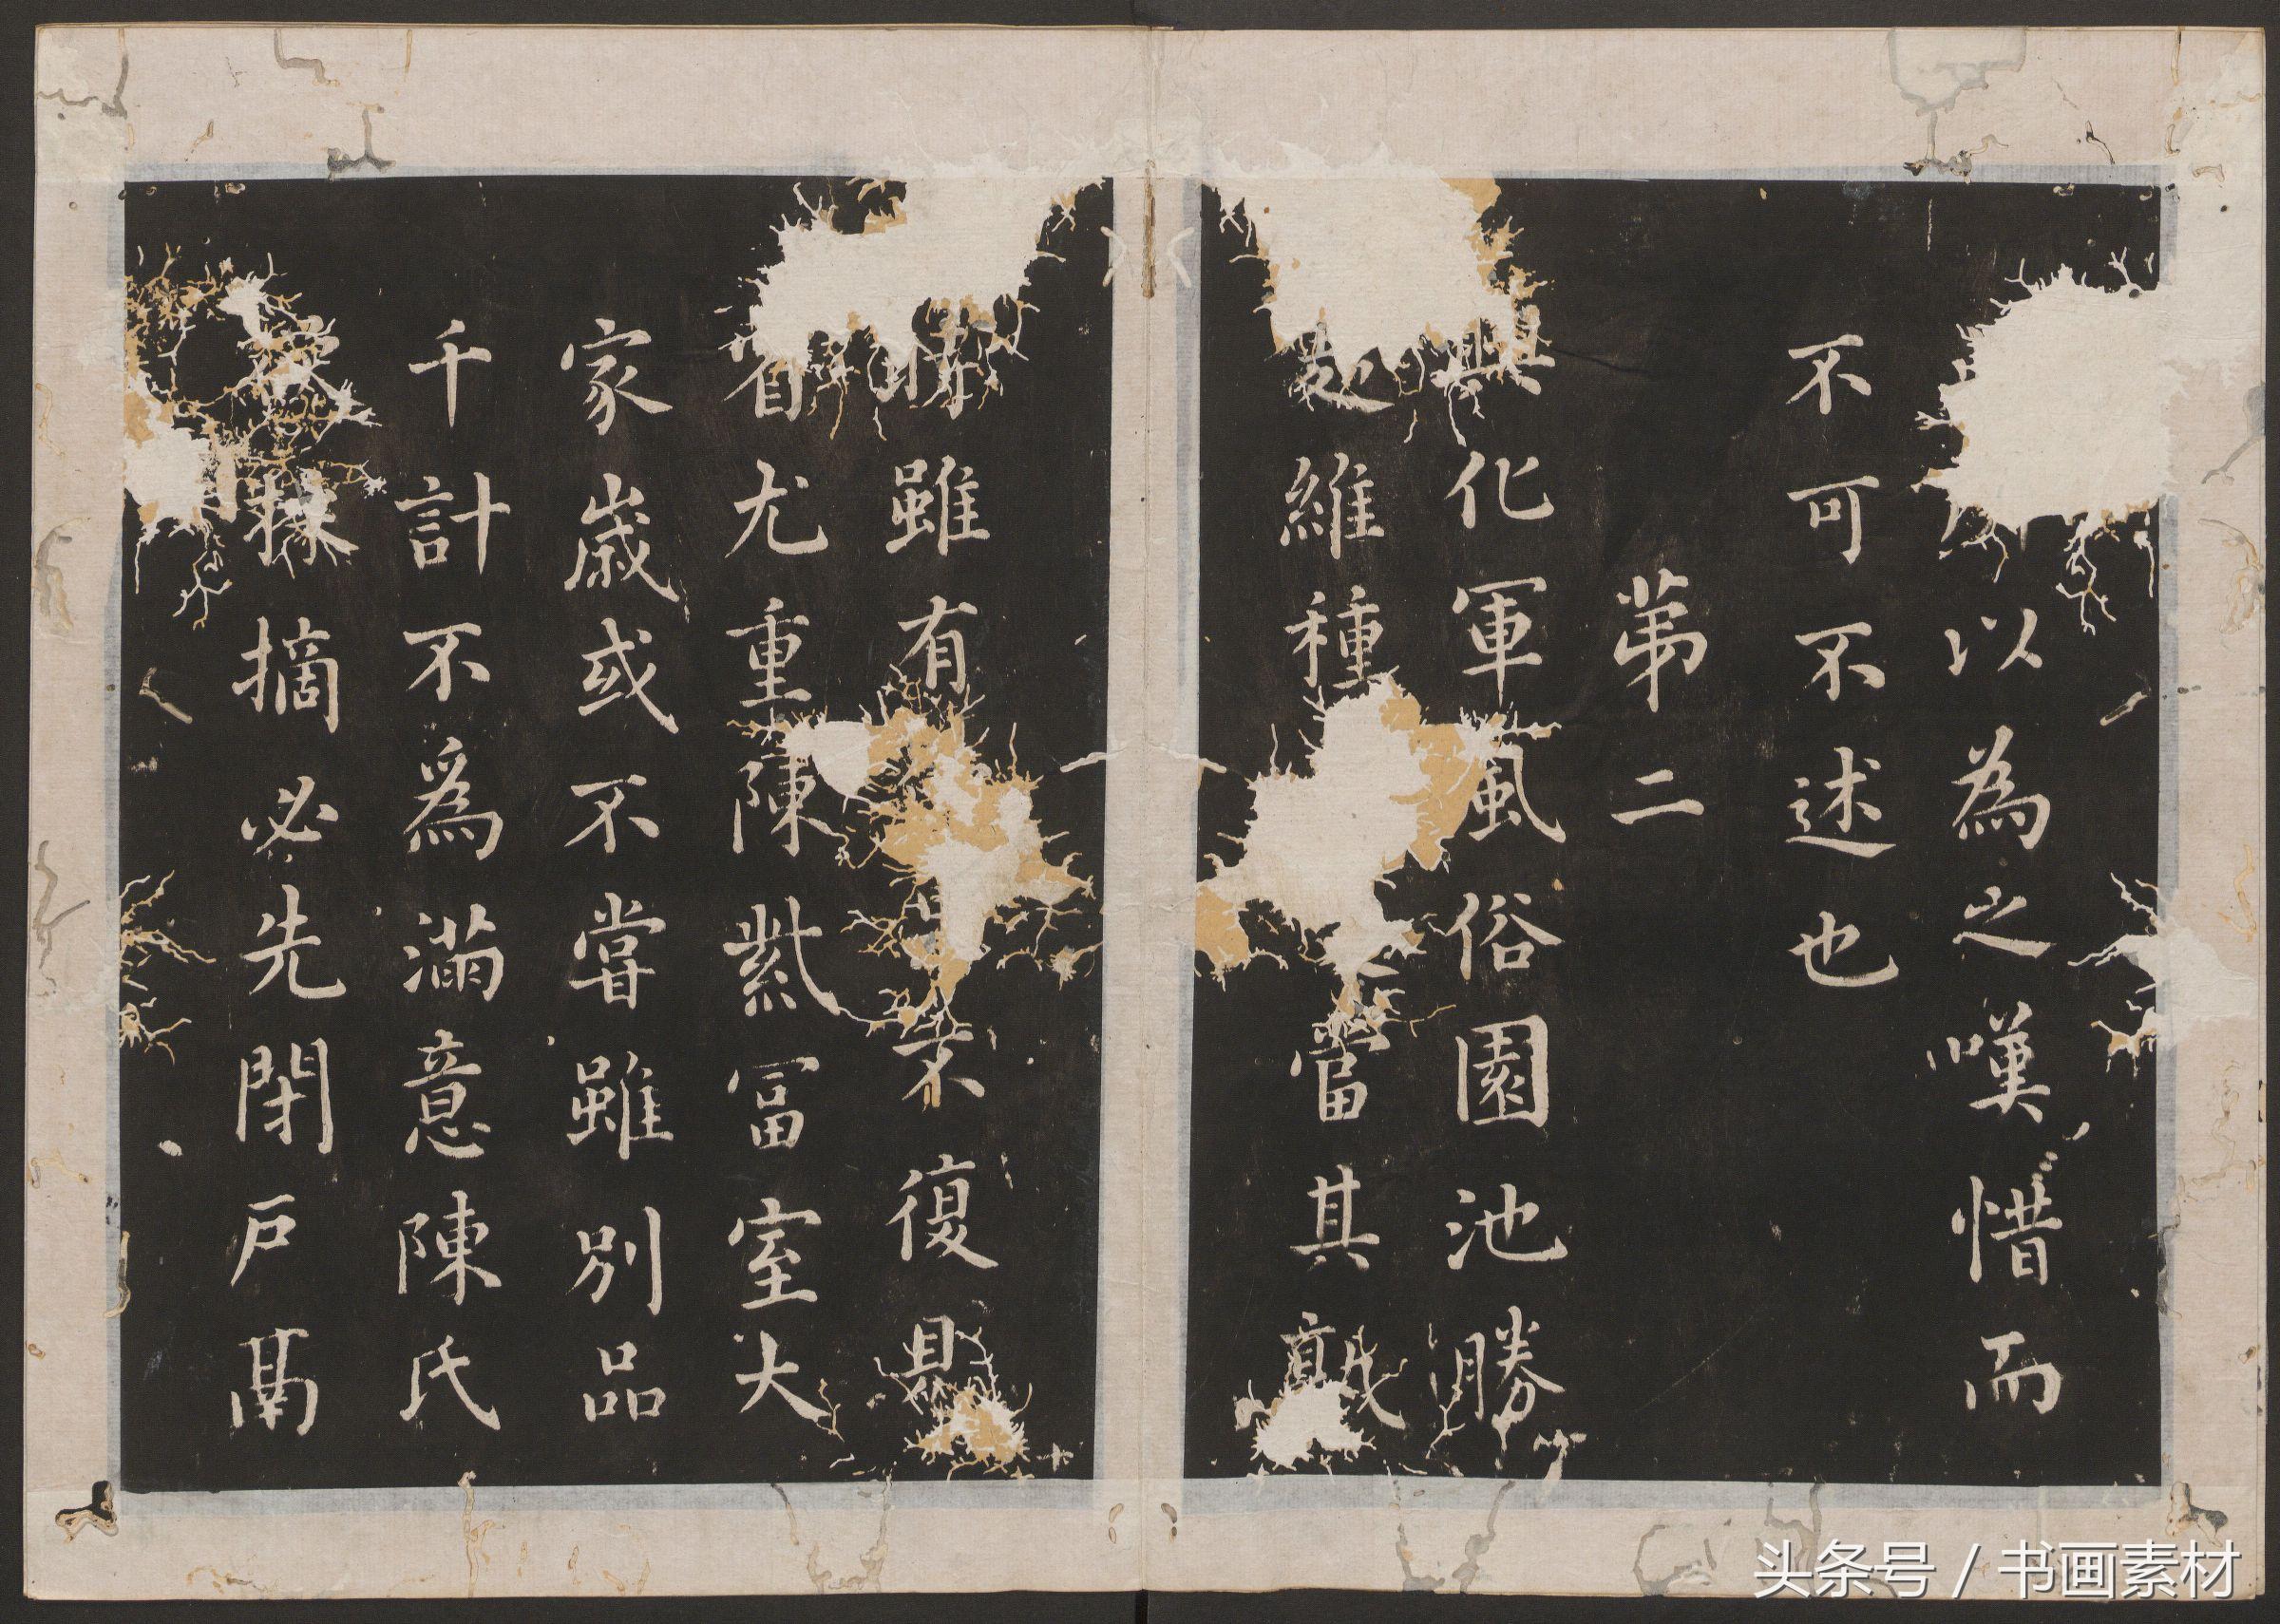 以為之嘆惜而
不可不述也
苐二
興化軍風俗園池勝
處維種當其熟
時雖有不復見
省尤重陳紫冨室大
家歲或不嘗雖別品
千計不爲滿意陳氏
採摘必先閉戶鬲
头条号 / 书画素材